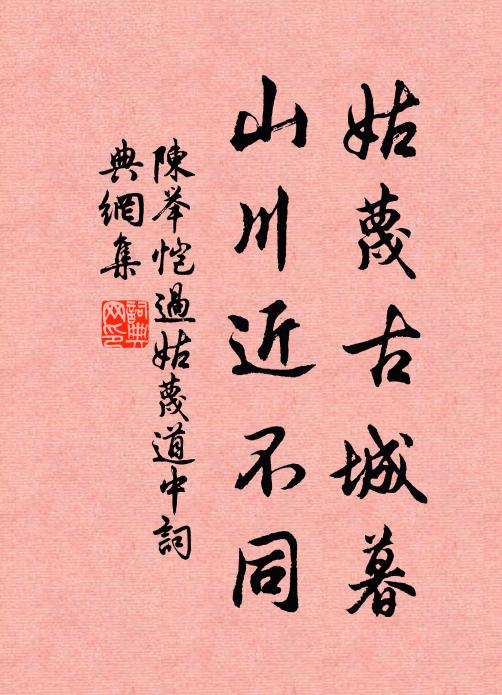 姑蔑古城暮
山川近不同
陳舉愷過姑蔑道中詞
典網集
詞典
网印